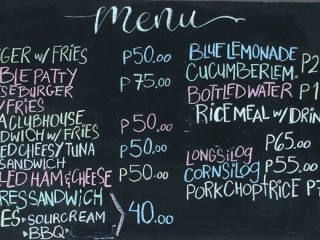 Menu
GER W/ FRIES P50.00
BLE PATTY P75.00
SEBURGER
W/FRIES
A CLUBHOUSE P50.00
DWICH W/ FRIES
ED CHEESY TUNA P50.00
SANDWICH
LED HAM & CHEESE P50.00
RESSANDWICH
ES • SOURCREAM 40.00
• BBQ
BLUE LEMONADE
CUCUMBERLEM. P2
BOTTLED WATER P1
RICE MEAL W/ DRIN
P65.00
LONGSILOG
CORNSILOG P55.00
PORKCHOPTRICE P7